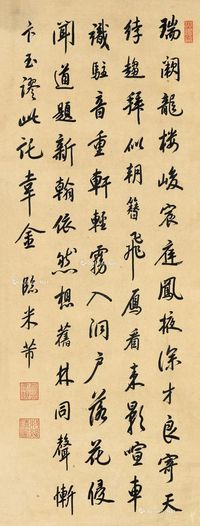 瑞闕龍樓峻宸庭鳳掖深才良寄天
綍趨拜似朝簪飛鴈看來影喧車
識駐音重軒輕霧入洞戶落花侵
聞道題新翰依然想舊林同聲慚
卞玉謬此託韋金 臨米芾